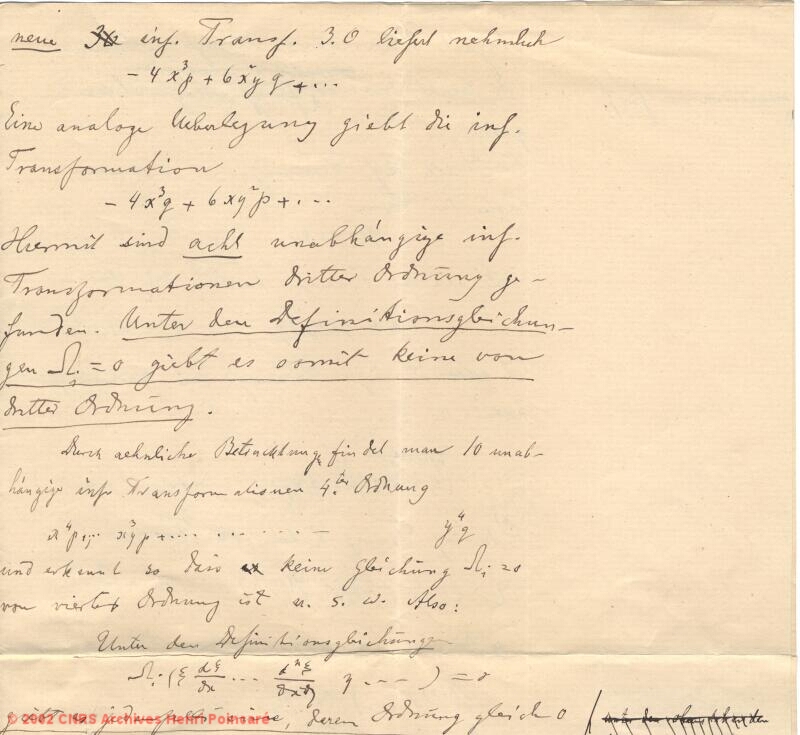 neue inf. Transf. 3.O liefert nehmlich
− 4x³p + 6x²yq + ...
Eine analoge Ueberlegung giebt die inf.
Transformation
− 4x³q + 6xy²p + ...
Hiermit sind acht unabhängige inf.
Transformationen dritter Ordnung ge-
funden. Unter den Definitionsgleichun-
gen Ωᵢ = 0 giebt es somit keine von
dritter Ordnung.
Durch aehnliche Betrachtung findet man 10 unab-
hängige inf Transformationen 4.ter Ordnung
x⁴p + ... x³yp + .... . . . . . − y⁴q
und erkennt so dass keine Gleichung Ωᵢ = 0
von vierter Ordnung ist u. s. w. Also:
Unter den Definitionsgleichungen
Ωᵢ (ξ dξ/dx ... dⁿξ/ η ---) = 0
giebt es jedenfalls keine, deren Ordnung gleich 0
© 2002 CNRS Archives Henri Poincaré